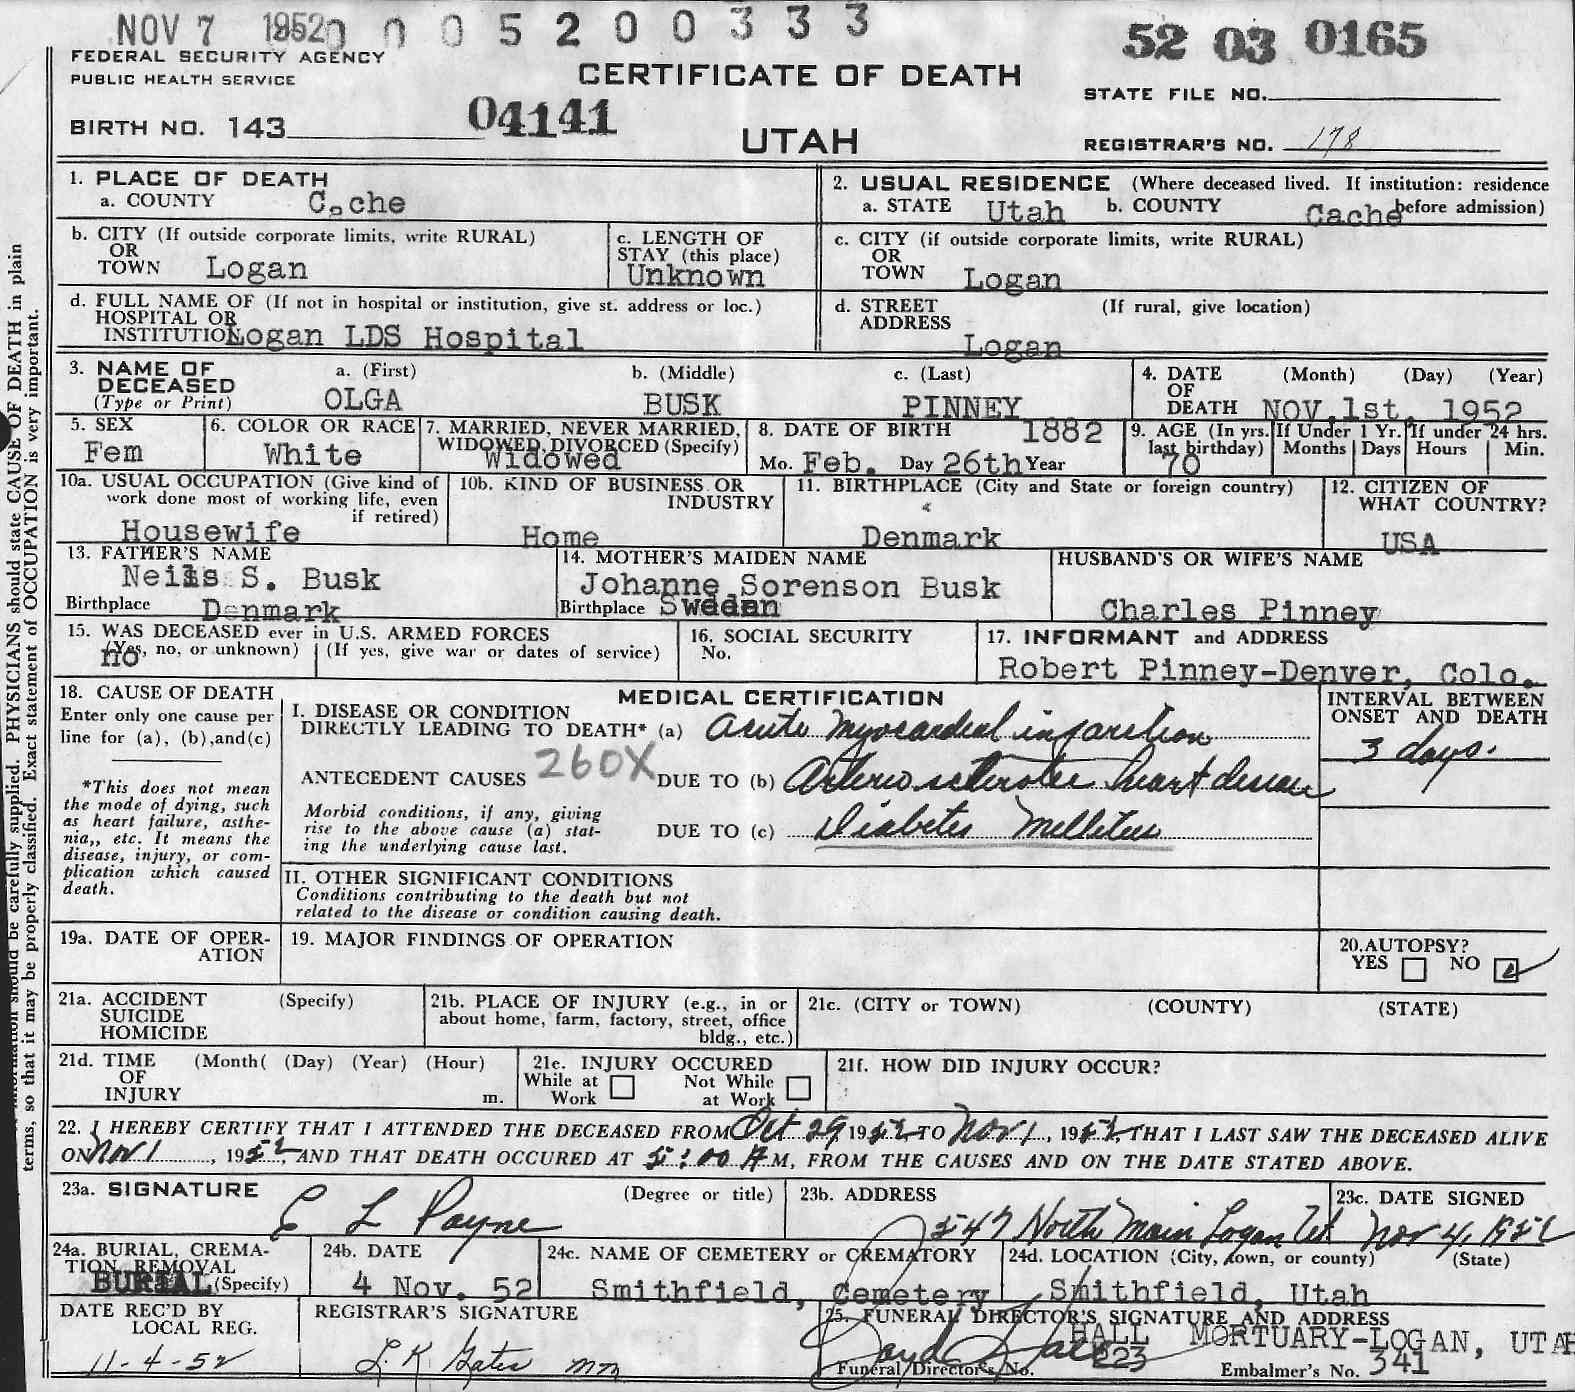 NOV 7 1952 0 0 0 5 2 0 0 3 3 3
52 03 0165
FEDERAL SECURITY AGENCY
PUBLIC HEALTH SERVICE
CERTIFICATE OF DEATH
STATE FILE NO.
BIRTH NO. 143 04141
UTAH
REGISTRAR'S NO. 178
1. PLACE OF DEATH
a. COUNTY C.che
2. USUAL RESIDENCE (Where deceased lived. If institution: residence
a. STATE Utah b. COUNTY Cache before admission)
b. CITY (If outside corporate limits, write RURAL)
OR
TOWN Logan
c. LENGTH OF
STAY (this place)
Unknown
c. CITY (if outside corporate limits, write RURAL)
OR
TOWN Logan
d. FULL NAME OF (If not in hospital or institution, give st. address or loc.)
HOSPITAL OR
INSTITUTION Logan LDS Hospital
d. STREET (If rural, give location)
ADDRESS
Logan
3. NAME OF
DECEASED
(Type or Print)
a. (First) b. (Middle) c. (Last)
OLGA BUSK PINNEY
4. DATE (Month) (Day) (Year)
OF
DEATH NOV.1st, 1952
5. SEX
Fem
6. COLOR OR RACE
White
7. MARRIED, NEVER MARRIED,
WIDOWED, DIVORCED (Specify)
Widowed
8. DATE OF BIRTH 1882
Mo. Feb. Day 26th Year
9. AGE (In yrs.
last birthday)
70
If Under 1 Yr.
Months Days
If under 24 hrs.
Hours Min.
10a. USUAL OCCUPATION (Give kind of
work done most of working life, even
if retired)
Housewife
10b. KIND OF BUSINESS OR
INDUSTRY
Home
11. BIRTHPLACE (City and State or foreign country)
Denmark
12. CITIZEN OF
WHAT COUNTRY?
USA
13. FATHER'S NAME
Neils S. Busk
Birthplace Denmark
14. MOTHER'S MAIDEN NAME
Johanne Sorenson Busk
Birthplace Sweden
HUSBAND'S OR WIFE'S NAME
Charles Pinney
15. WAS DECEASED ever in U.S. ARMED FORCES
(Yes, no, or unknown) (If yes, give war or dates of service)
no
16. SOCIAL SECURITY
No.
17. INFORMANT and ADDRESS
Robert Pinney-Denver, Colo.
18. CAUSE OF DEATH
Enter only one cause per
line for (a), (b),and(c)
*This does not mean
the mode of dying, such
as heart failure, asthe-
nia,, etc. It means the
disease, injury, or com-
plication which caused
death.
MEDICAL CERTIFICATION
I. DISEASE OR CONDITION
DIRECTLY LEADING TO DEATH* (a) Acute Myocardial infarction
ANTECEDENT CAUSES 260X DUE TO (b) Arteriosclerotic heart disease
Morbid conditions, if any, giving
rise to the above cause (a) stat-
ing the underlying cause last.
DUE TO (c) Diabetes Mellitus
INTERVAL BETWEEN
ONSET AND DEATH
3 days.
II. OTHER SIGNIFICANT CONDITIONS
Conditions contributing to the death but not
related to the disease or condition causing death.
19a. DATE OF OPER-
ATION
19. MAJOR FINDINGS OF OPERATION
20.AUTOPSY?
YES NO
21a. ACCIDENT (Specify)
SUICIDE
HOMICIDE
21b. PLACE OF INJURY (e.g., in or
about home, farm, factory, street, office
bldg., etc.)
21c. (CITY or TOWN) (COUNTY) (STATE)
21d. TIME (Month( (Day) (Year) (Hour)
OF
INJURY m.
21e. INJURY OCCURED
While at Not While
Work at Work
21f. HOW DID INJURY OCCUR?
22. I HEREBY CERTIFY THAT I ATTENDED THE DECEASED FROM Oct 29 1952 TO Nov 1, 1952, THAT I LAST SAW THE DECEASED ALIVE
ON Nov 1, 1952, AND THAT DEATH OCCURED AT 5:00 A M, FROM THE CAUSES AND ON THE DATE STATED ABOVE.
23a. SIGNATURE (Degree or title)
E L Payne
23b. ADDRESS
547 North Main Logan Ut
23c. DATE SIGNED
Nov 4, 1952
24a. BURIAL, CREMA-
TION, REMOVAL
BURIAL (Specify)
24b. DATE
4 Nov. 52
24c. NAME OF CEMETERY or CREMATORY
Smithfield, Cemetery
24d. LOCATION (City, town, or county) (State)
Smithfield, Utah
DATE REC'D BY
LOCAL REG.
11-4-52
REGISTRAR'S SIGNATURE
L. K. Gates mm
25. FUNERAL DIRECTOR'S SIGNATURE AND ADDRESS
HALL MORTUARY-LOGAN, UTAH
Funeral Director's No. 223 Embalmer's No. 341
information should be carefully supplied. PHYSICIANS should state CAUSE OF DEATH in plain
terms, so that it may be properly classified. Exact statement of OCCUPATION is very important.